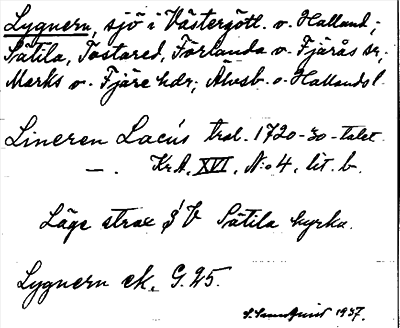 Lygnern, sjö i Västergötl. o. Halland;
Sätila, Tostared, Förlanda o. Fjärås sr,
Marks o. Fjäre hdr; Älvsb. o. Hallands l.
Lineren Lacus trol. 1720-30-talet.
— . Kr.A. XVI, N:o 4, lit. b.
Läge strax S V Sätila kyrka.
Lygnern ek. G. 25.
1937.